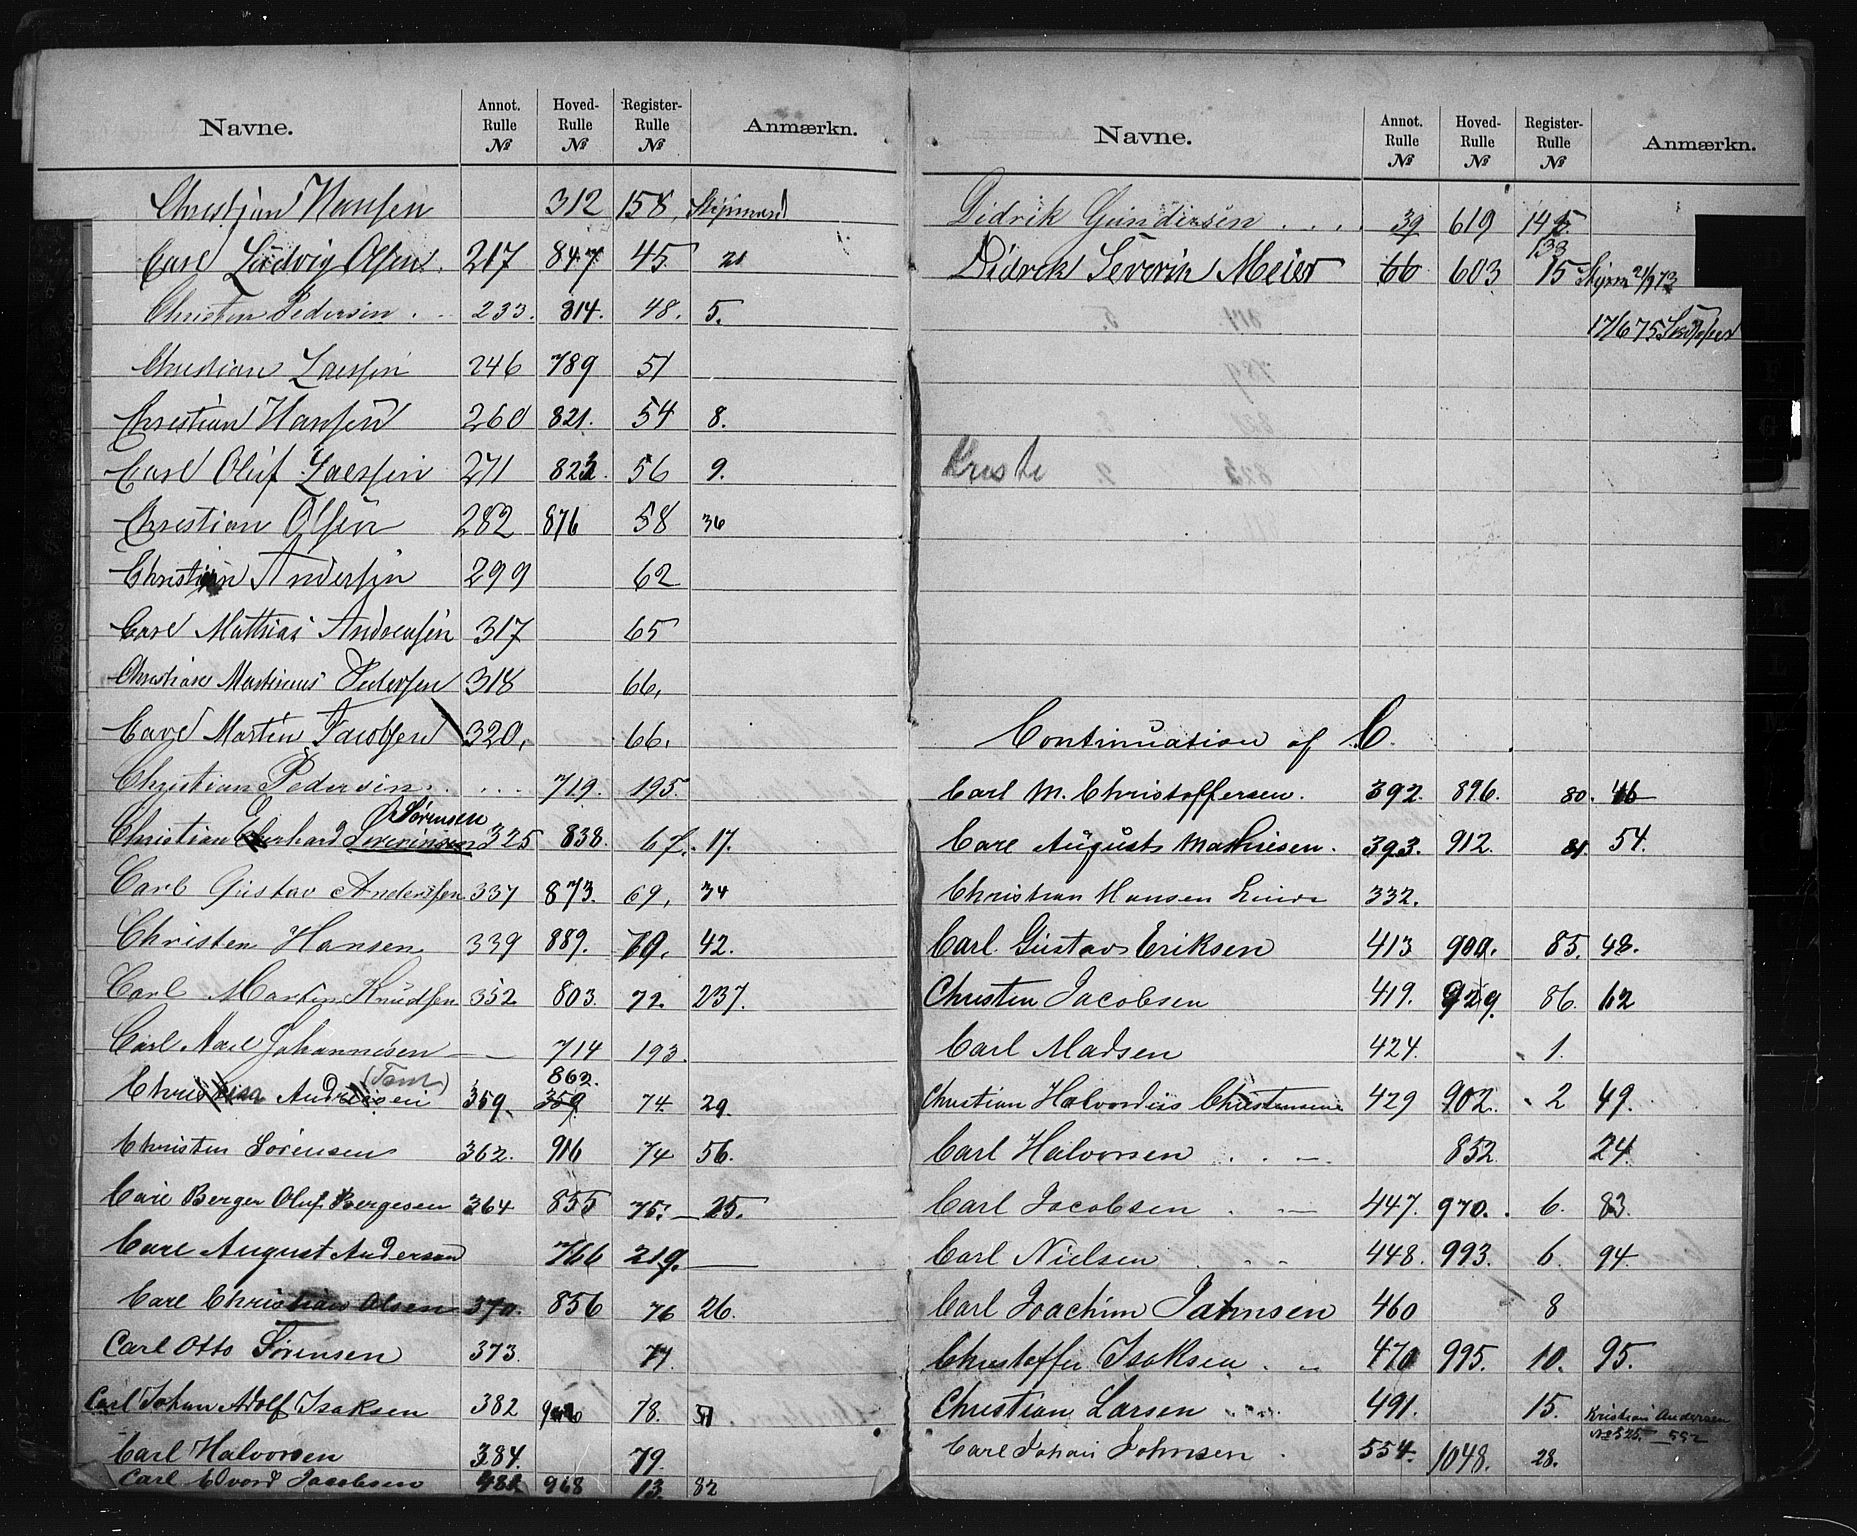 Navne. Annot. Rulle № Hoved- Rulle № Register- Rulle № Anmærkn.
Christian Hansen 312 158
Carl Ludvig Olsen. 217 847 45 21
Christen Pedersen . . 233. 814. 48. 5.
Christian Larssen 246 789 51
Christian Hansen 260 821. 54 8.
Carl Oluf Larssen 271 823. 56 9.
Christian Olsen 282 876 58 36
Christian Andersen 299 62
Carl Mathias Andreasen 317 65
Christian Martinius Pedersen 318 66.
Carl Martin Jacobsen 320. 66.
Christian Pedersen. . . . . 719. 195.
Sørensen
Christian Eberhard Severinsen 325 838. 67. 17.
Carl Gustav Anderssen 337 873. 69. 34
Christen Hansen 339 889. 70. 42.
Carl Martin Knudssen 352 803. 72. 237.
Carl Axel Johannesen — 714 193.
(Tom) 862.
Christian Andresen 359. 359 74. 29.
Christen Sørensen 362. 916 74 56.
Carl Berger Oluf Bergesen 364 855 75. — 25.
Carl August Andersen 766 219. —
Carl Christian Olsen 370. 856 76 26.
Carl Otto Sørensen 373. 77.
Carl Johan Adolf Isaksen 382 78. 51
Carl Halvorsen 384. 79.
Carl Edvard Jacobsen 481 968 13. 82
Navne. Annot. Rulle № Hoved- Rulle № Register- Rulle № Anmærkn.
Didrik Gundersen . . . . 39 619 145
138
Didrik Severin Meier 66 603 15
17/6 75 Skipper
Kriste
Continuation of C.
Carl M. Christoffersen. 392. 896. 80. 46
Carl August Mathiesen. 393. 912. 81. 54.
Christian Hansen Linde 332.
Carl Gustav Eriksen 413 900. 85. 48.
Christen Jacobsen 419. 929. 86. 62
Carl Madsen 424. 1.
Christian Halvordius Christensen 429 902. 2 49.
Carl Halvorsen . . — 852. 24.
Carl Jacobsen . — 447. 970. 6. 83.
Carl Nielsen . . . 448. 993. 6. 94.
Carl Joachim Jahnsen 460 8
Christoffer Isaksen . . 470 995. 10. 95.
Christian Larsen . . . 491. 15. Kristian Andersen
№ 525. — 592
Carl Johan Johnsen . 554. 1048. 28.